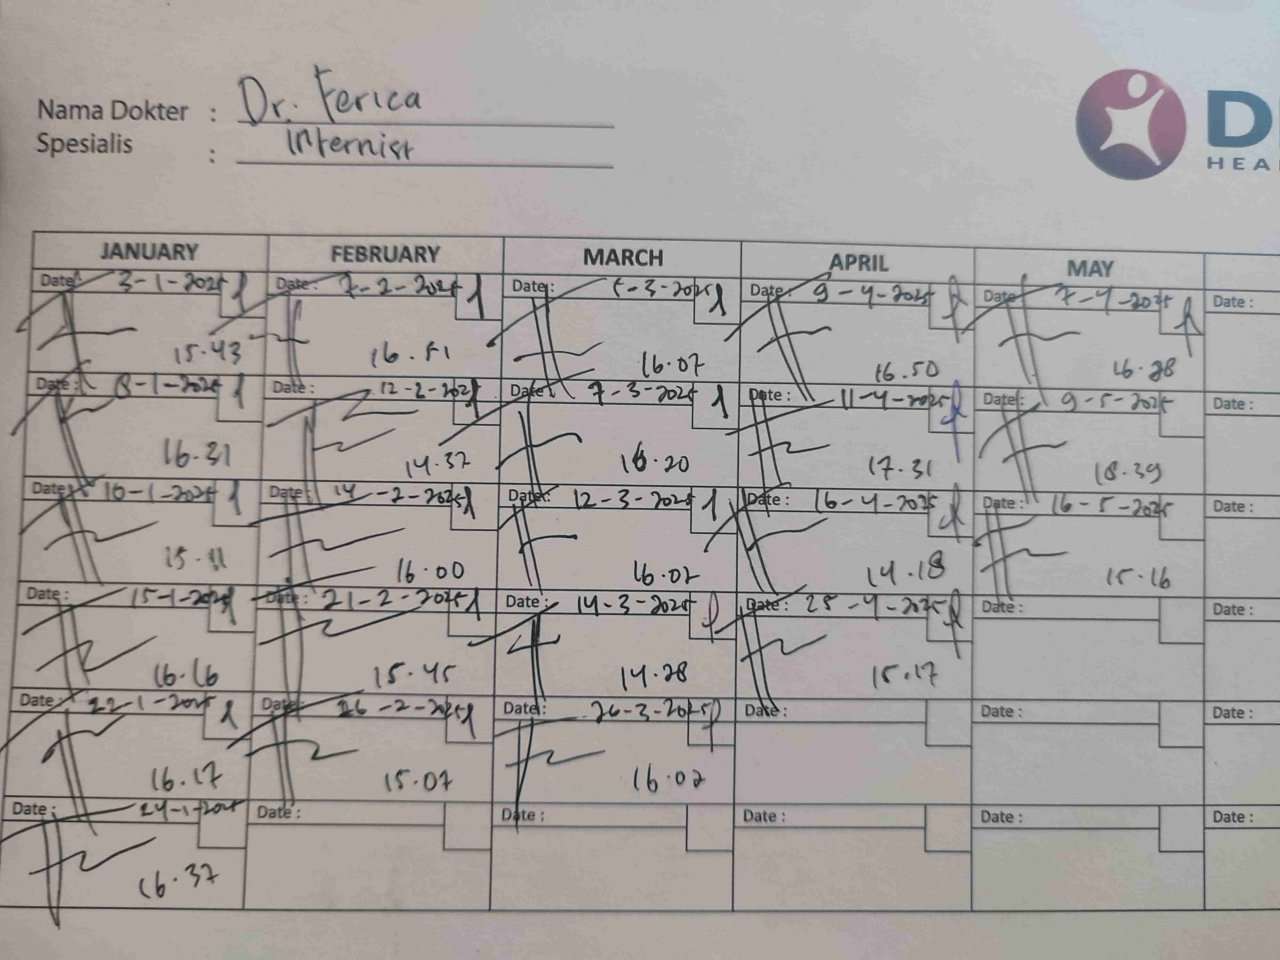 Nama Dokter : Dr. Ferica
Spesialis : Internist
D
HEA
JANUARY FEBRUARY MARCH APRIL MAY
Date: 3-1-2025 Date: 7-2-2025 Date: 5-3-2025 Date: 9-4-2025 Date: 7-4-2025 Date:
15.43 16.51 16.07 16.50 16.28
Date: 8-1-2025 Date: 12-2-2025 Date: 7-3-2025 Date: 11-4-2025 Date: 9-5-2025 Date:
16.31 14.37 16.20 17.31 18.39
Date: 10-1-2025 Date: 14-2-2025 Date: 12-3-2025 Date: 16-4-2025 Date: 16-5-2025 Date:
15.11 16.00 16.02 14.18 15.16
Date: 15-1-2025 Date: 21-2-2025 Date: 14-3-2025 Date: 25-4-2025 Date: Date:
16.16 15.45 14.28 15.17
Date: 22-1-2025 Date: 26-2-2025 Date: 26-3-2025 Date: Date: Date:
16.17 15.07 16.02
Date: 24-1-2025 Date: Date: Date: Date: Date:
16.37